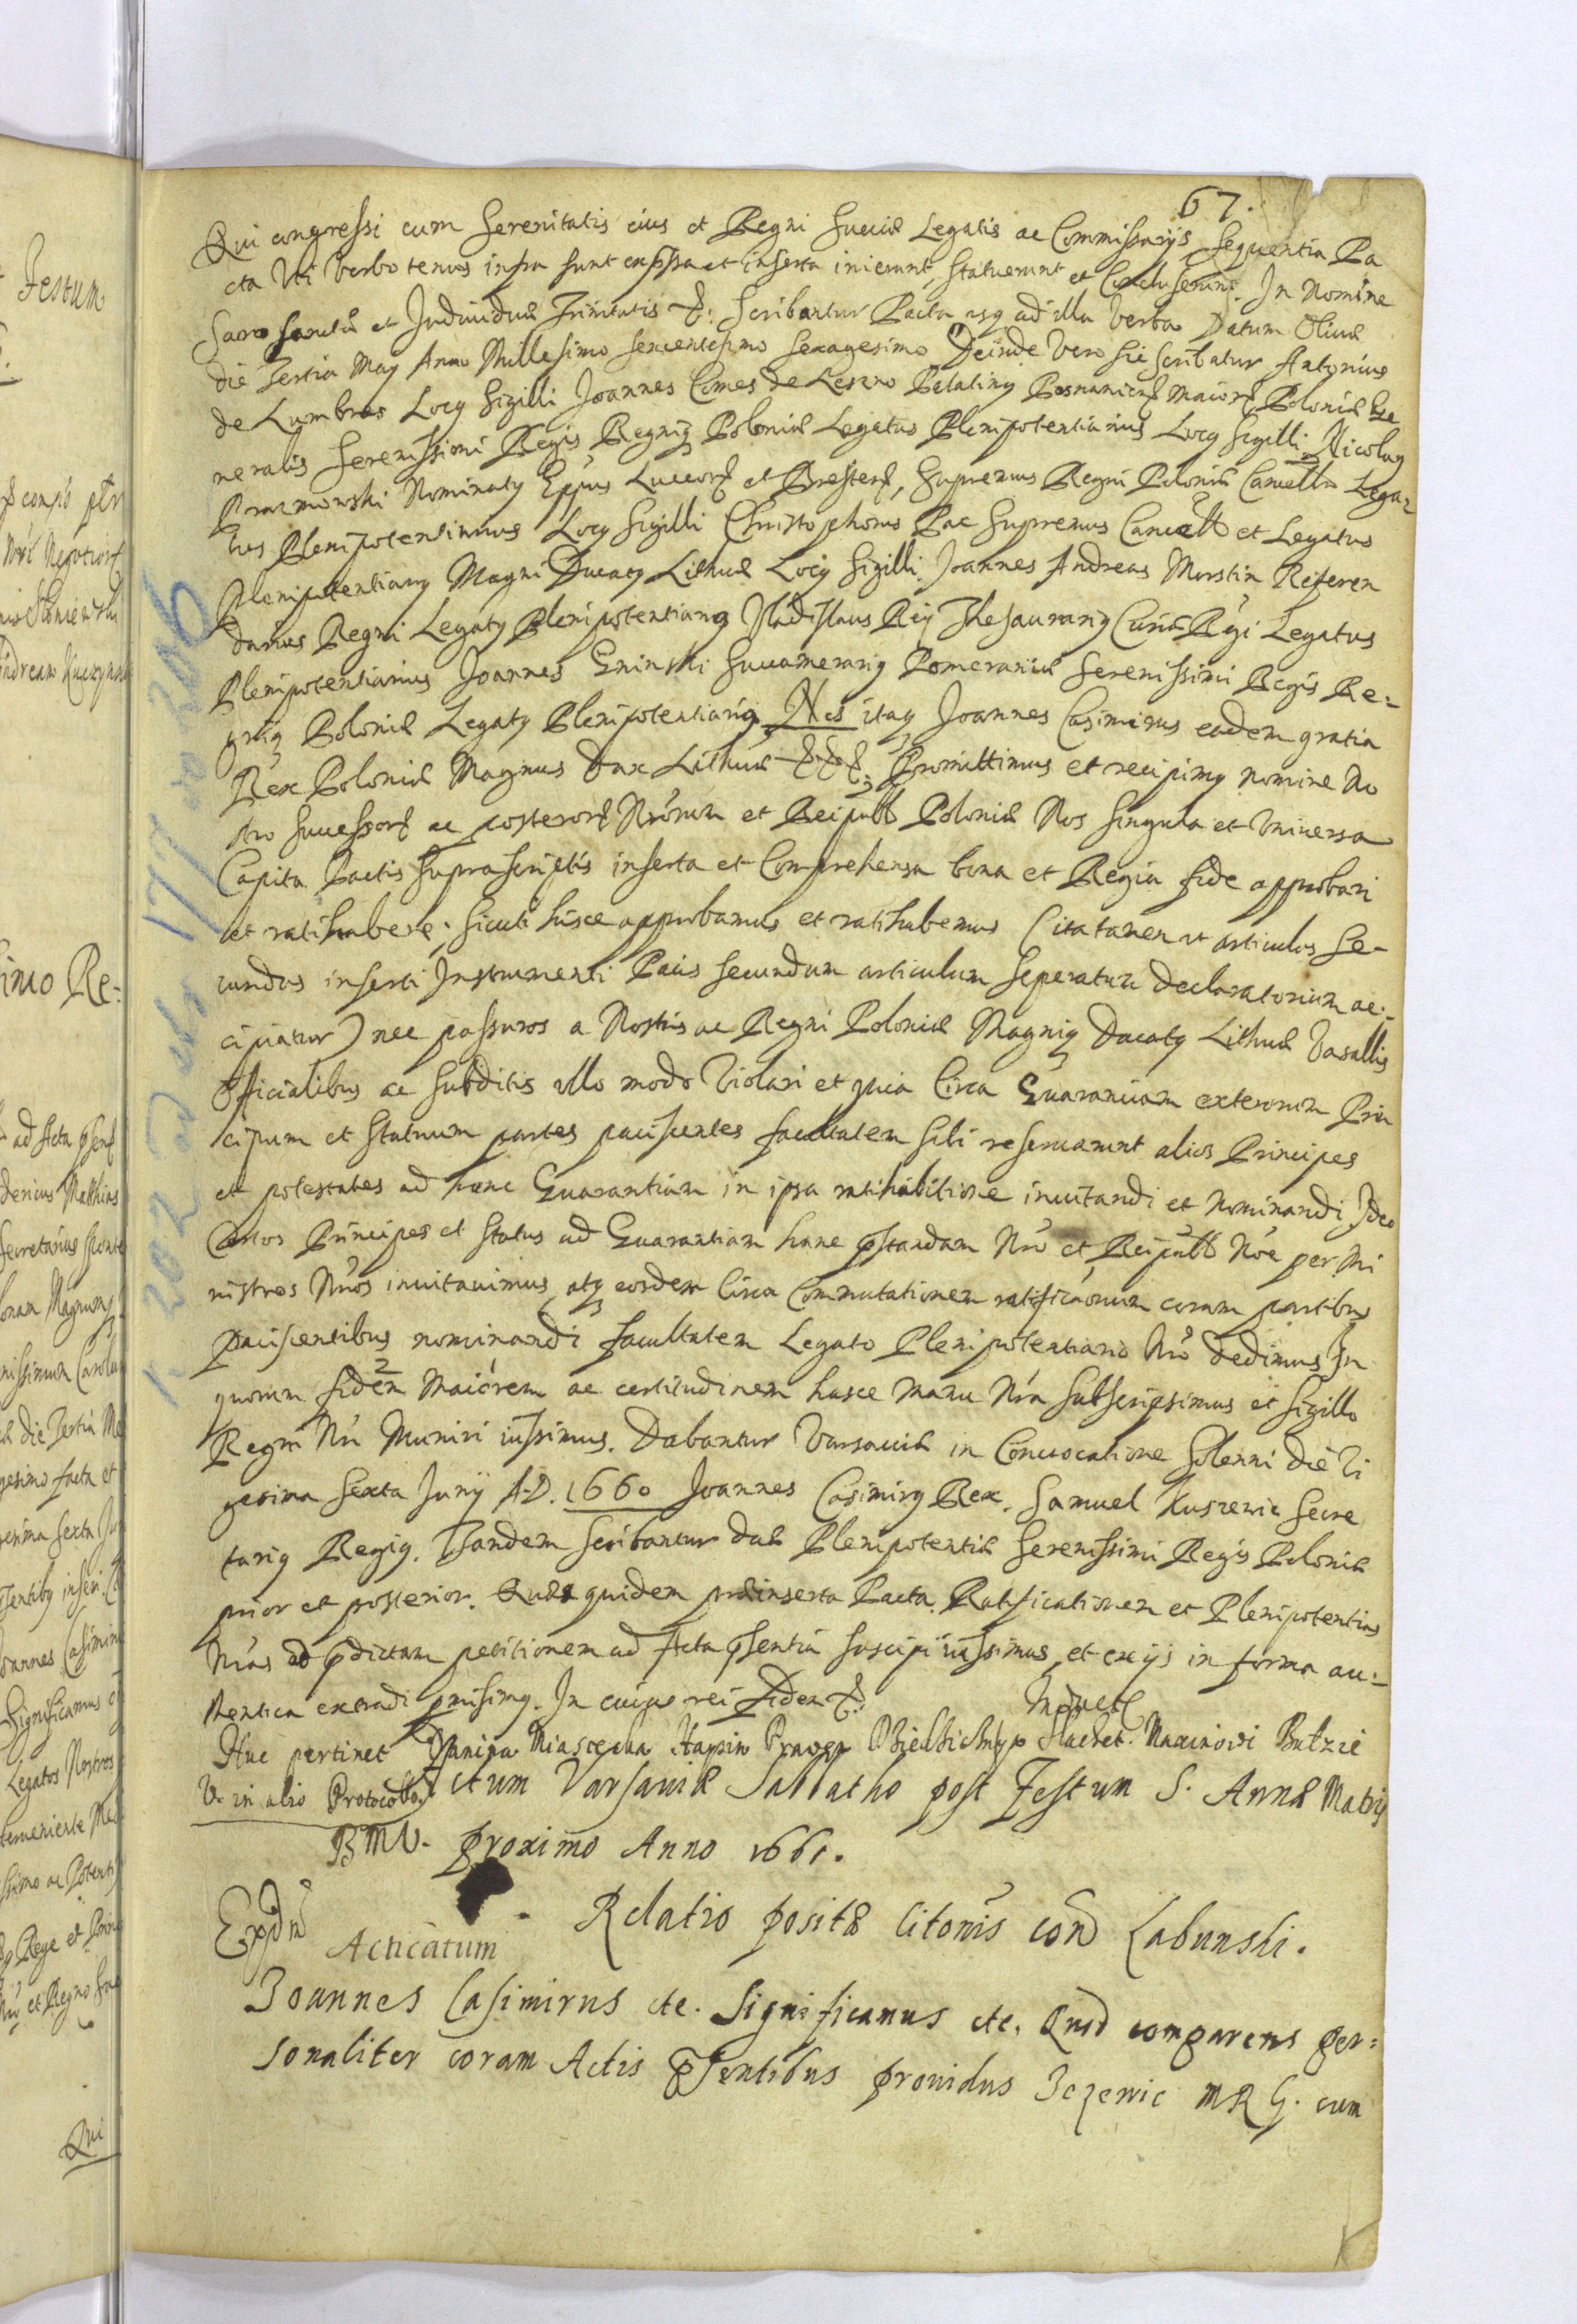 67.
Qui congressi cum Serenitatis eius et Regni Sueciæ Legatis ac Commissarijs Sequentia Pa
cta Uti Verbo tenus infra sunt expssa et inserta inierunt, Statuerunt et Concluserunt. In Nomine
Sacro Sanctæ et Indiuiduæ Trinitatis &: Scribantur Pacta usq ad illa Verba Datum Oliuæ
die Tertia May Anno Millesimo Sexcentesimo Sexagesimo Deinde Vero sic Scribatur Antonius
de Lumbres Locg Sigilli Joannes Comes de Leszno Palating Posnanien Maior Poloniæ Ge
neralis Serenissimi Regis Regniq Poloniæ Legatus Plenipotentiarius Locg Sigilli Nicolag
Prazmowski Nominatg Eppus Luceor et Bresten, Supremus Regni Poloniæ Cancell Lega=
tus Plenipotentiarius Locg Sigilli Christophorus Pac Supremus Cancell et Legatus
Plenipotentiarg Magni Ducatg Lithuæ Locg Sigilli Joannes Andreas Morstin Referen
darius Regni Legatg Plenipotentiarg Vladislaus Rey Thesaurarig Curiæ Rgi Legatus
Plenipotentiarius Joannes Gninski Succamerarig Pomeraniæ Serenissimi Regis Re=
gniq Poloniæ Legatg Plenipotentiarig Nos itaq Joannes Casimirus eadem gratia
Rex Poloniæ Magnus Dux Lithuæ &&& Promittimus et recipimg nomine No
stro Successor ac posteror Nrorum et Reipubl Poloniæ Nos Singula et Vniuersa
Capita Pactis Suprascriptis inserta et Comprehensa bona et Regia fide approbari
et ratihabere. Sicuti hisce approbamus et ratihabemus (ita tamen ut articulus Se=
cundus inserti Instrumenti Pacis secundum articulum Seperatum declaratorium ac=
cipiatur) nec passuros a Nostris ac Regni Poloniæ Magniq Ducatg Lithuæ Vasallis
Officialibus ac Subditis ullo modo Violari et quia Circa Guarantiam exterorum Prin
cipum et Statuum partes paciscentes facultatem sibi reseruarunt alios Principes
et potestates ad hanc Guarantiam in ipsa ratihabitione inuitandi et Nominandi, Ideo
Principes et Status ad Guarantiam hanc pstandam Nro et Reipubl Nræ per Mi
nistros Nros inuitauimus atq eosdem Circa Commutationem ratificãonum coram partibus
paciscentibus nominandi facultatem Legato Plenipotentiario Nro dedimus In
quorum fidem Maiorem ac certitudinem hasce manu Nra Subscripsimus et Sigillo
Regni Nri Muniri iussimus. Dabantur Varsauiæ in Conuocatione Solenni die Vi
gesima Sexta Junij A.D. 1660 Joannes Casimirg Rex. Samuel Kuszewic Secre
tarig Regig. Tandem Scribantur duæ Plenipotentiæ Serenissimi Regis Poloniæ
prior et posterior. Quæ quidem præinserta Pacta, Ratificationem et Plenipotentias
Nras ad pdictam petitionem ad Acta psentia suscipi iussimus, et ex ijs in forma au=
thentica extradi pmisimg. In cuius rei fidem &
Huc pertinet
V. in alio Protocollo
Actum Varsauiæ Sabbatho post Festum S. Annæ Matris
BMV. proximo Anno 1661.
Relatio positæ Citonis con Labunski.
Acticatum
Joannes Casimirus etc. Significamus etc. Quod comparens per=
sonaliter coram Actis psentibus prouidus MRG. cum